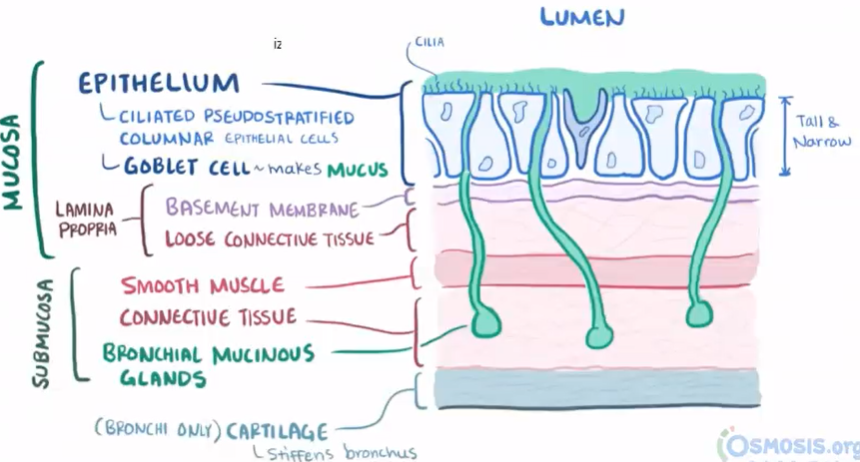 LUMEN
iz
CILIA
MUCOSA
EPITHELIUM
CILIATED PSEUDOSTRATIFIED
COLUMNAR EPITHELIAL CELLS
GOBLET CELL ~ makes MUCUS
Tall &
Narrow
LAMINA
PROPRIA
BASEMENT MEMBRANE
LOOSE CONNECTIVE TISSUE
SUBMUCOSA
SMOOTH MUSCLE
CONNECTIVE TISSUE
BRONCHIAL MUCINOUS
GLANDS
(BRONCHI ONLY) CARTILAGE
Stiffens bronchus
OSMOSIS.org